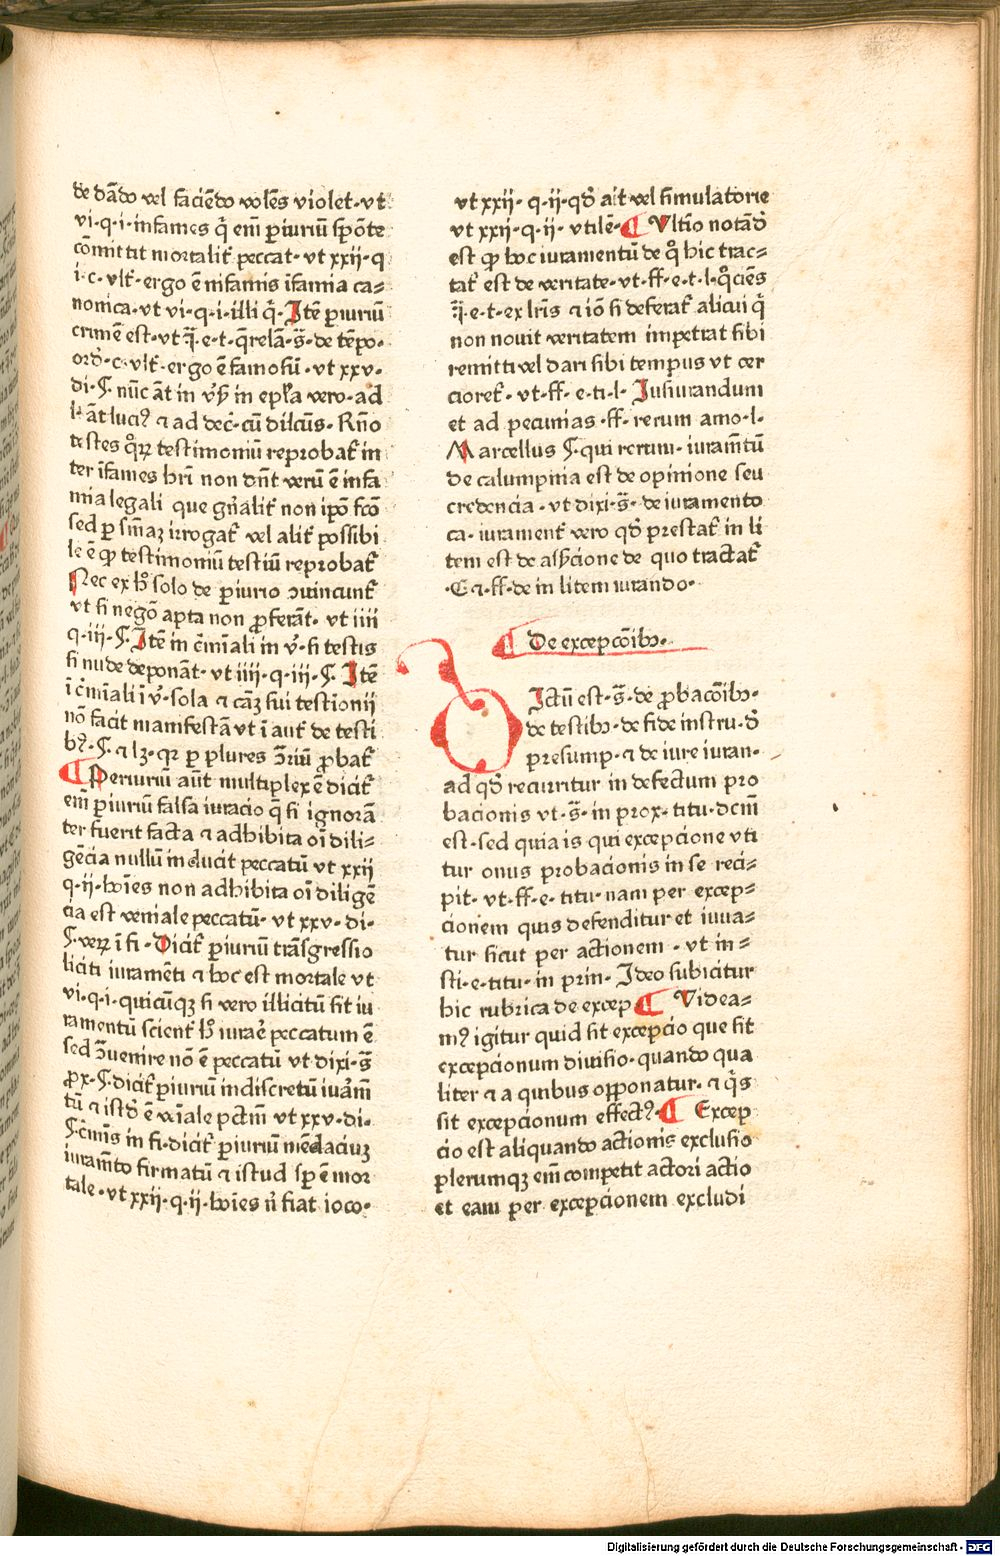 de dādo vel faciēdo volēs violet·vt
vi·q·i·infames q̄ em̄ ꝑiuriū spōte
cōmittit mortalit̄ peccat·vt xxii·q
i·c·vlt̄·ergo ē infamis īfamia ca⸗
nonica·vt vi·q·i·illi q̄·Itē ꝑiuriū
crimē est·vt q̄·e·t·q̄relā·s̄·de tēpo·
ord̄·c·vlt̄·ergo ē famosū·vt xxv·
di·§·nūc āt in vꝰ in epl̄a vero·ad
āt luciꝰ ⁊ ad dec̄·cū dilcūs·Rn̄o
testes q̄ꝝ testimoniū reprobat̄ in
ter īfames hr̄i non dn̄t verū ē infa
mia legali que gn̄alit̄ non ipō fcō
sed ꝑ sm̄aꝫ irrogat̄ vel alit̄ possibi
le ē ꝙ testimoniū testiū reprobat̄
Nec ex hͦ solo de ꝑiurio ↄuincunt̄
vt si negō apta non ꝓferāt·vt iiii
q·iii·§·Itē in c̄minali in vꝰ·si testis
si nude deponāt·vt iiii·q·iii·§·Itē
ī c̄minali ī vꝰ·sola ⁊ cāꝫ sui testionii
nō facit manifestā vt ī aut̄ de testi
bꝰ·§·⁊ lꝫ·qꝛ ꝑ plures ↄ̄riū ꝓbat̄
¶ Periuriū aūt multiplex ē dicit̄
em̄ ꝑiuriū falsa iuracio q̄ si ignorā
ter fuerit facta ⁊ adhibita oī dili⸗
gēcia nullū inducit peccatū vt xxii
q·ii·hōies non adhibita oī diligē
cia est veniale peccatū·vt xxv·di·
§·veꝝ ī fi·Dicit̄ ꝑiuriū trāsgressio
liciti iuramēti ⁊ hoc est mortale vt
vi·q·i·quicūqꝫ si vero illicitū sit iu
ramentū scient̄ hͦ iuraꝰe peccatum ē
sed ↄ̄uenire nō ē peccatū vt dixi·s̄
ꝓx·§·dicit̄ ꝑiuriū indiscretū iuām̄
tū ⁊ istd̄ ē veīale pctm̄ vt xxv·di·
§·c̄mis in fi·dicit̄ ꝑiuriū mēdaciuꝫ
iuram̄to firmatū ⁊ istud sꝑ ē mor
tale·vt xxii·q·ii·hōies n̄ fiat ioco·
vt xxii·q·ii·qd̄ ait vel simulatorie
vt xxii·q·ii·vtilē·¶ Vltīo notād̄
est ꝙ hoc iuramentū de q̊ hic trac⸗
tat̄ est de veritate·vt·ff·e·t·l·q̊ciēs
q̄·e·t·ex lr̄is ⁊ iō si deferat̄ alicui q̄
non nouit veritatem impetrat sibi
remitti vel dari sibi tempus vt cer
cioret̄·vt·ff·e·ti·l·Iusiurandum
et ad pecunias·ff·rerum amo·l·
Marcellus §·qui rerum·iuram̄tū
de calumpnia est de opinione seu
credencia·vt dixi·s̄·de iuramento
ca·iurament̄ vero qd̄ prestat̄ in li
tem est de affectione de quo tractat̄
·C ⁊·ff·de in litem iurando·
¶ De excepcōibꝰ·
DIctū est·s̄·de ꝓbacōibꝰ·
de testibꝰ·de fide instru·d̄
presump·⁊ de iure iuran·
ad qd̄ recurritur in defectum pro
bacionis vt·s̄·in prox·titu·dcm̄
est·sed quia is qui excepcione vti
tur onus probacionis in se reci⸗
pit·vt·ff·e·titu·nam per excep⸗
cionem quis defenditur et iuua⸗
tur sicut per actionem·vt in⸗
sti·e·titu·in prin·Ideo subicitur
hic rubrica de excep ¶ Videa⸗
mꝰ igitur quid sit excepcio que sit
excepcionum diuisio·quando qua
liter ⁊ a quibus opponatur·⁊ q̄s
sit excepcionum effectꝰ·¶ Excep
cio est aliquando actionis exclusio
plerumqꝫ em̄ competit actori actio
et eam per excepcionem excludi
Digitalisierung gefördert durch die Deutsche Forschungsgemeinschaft - DFG